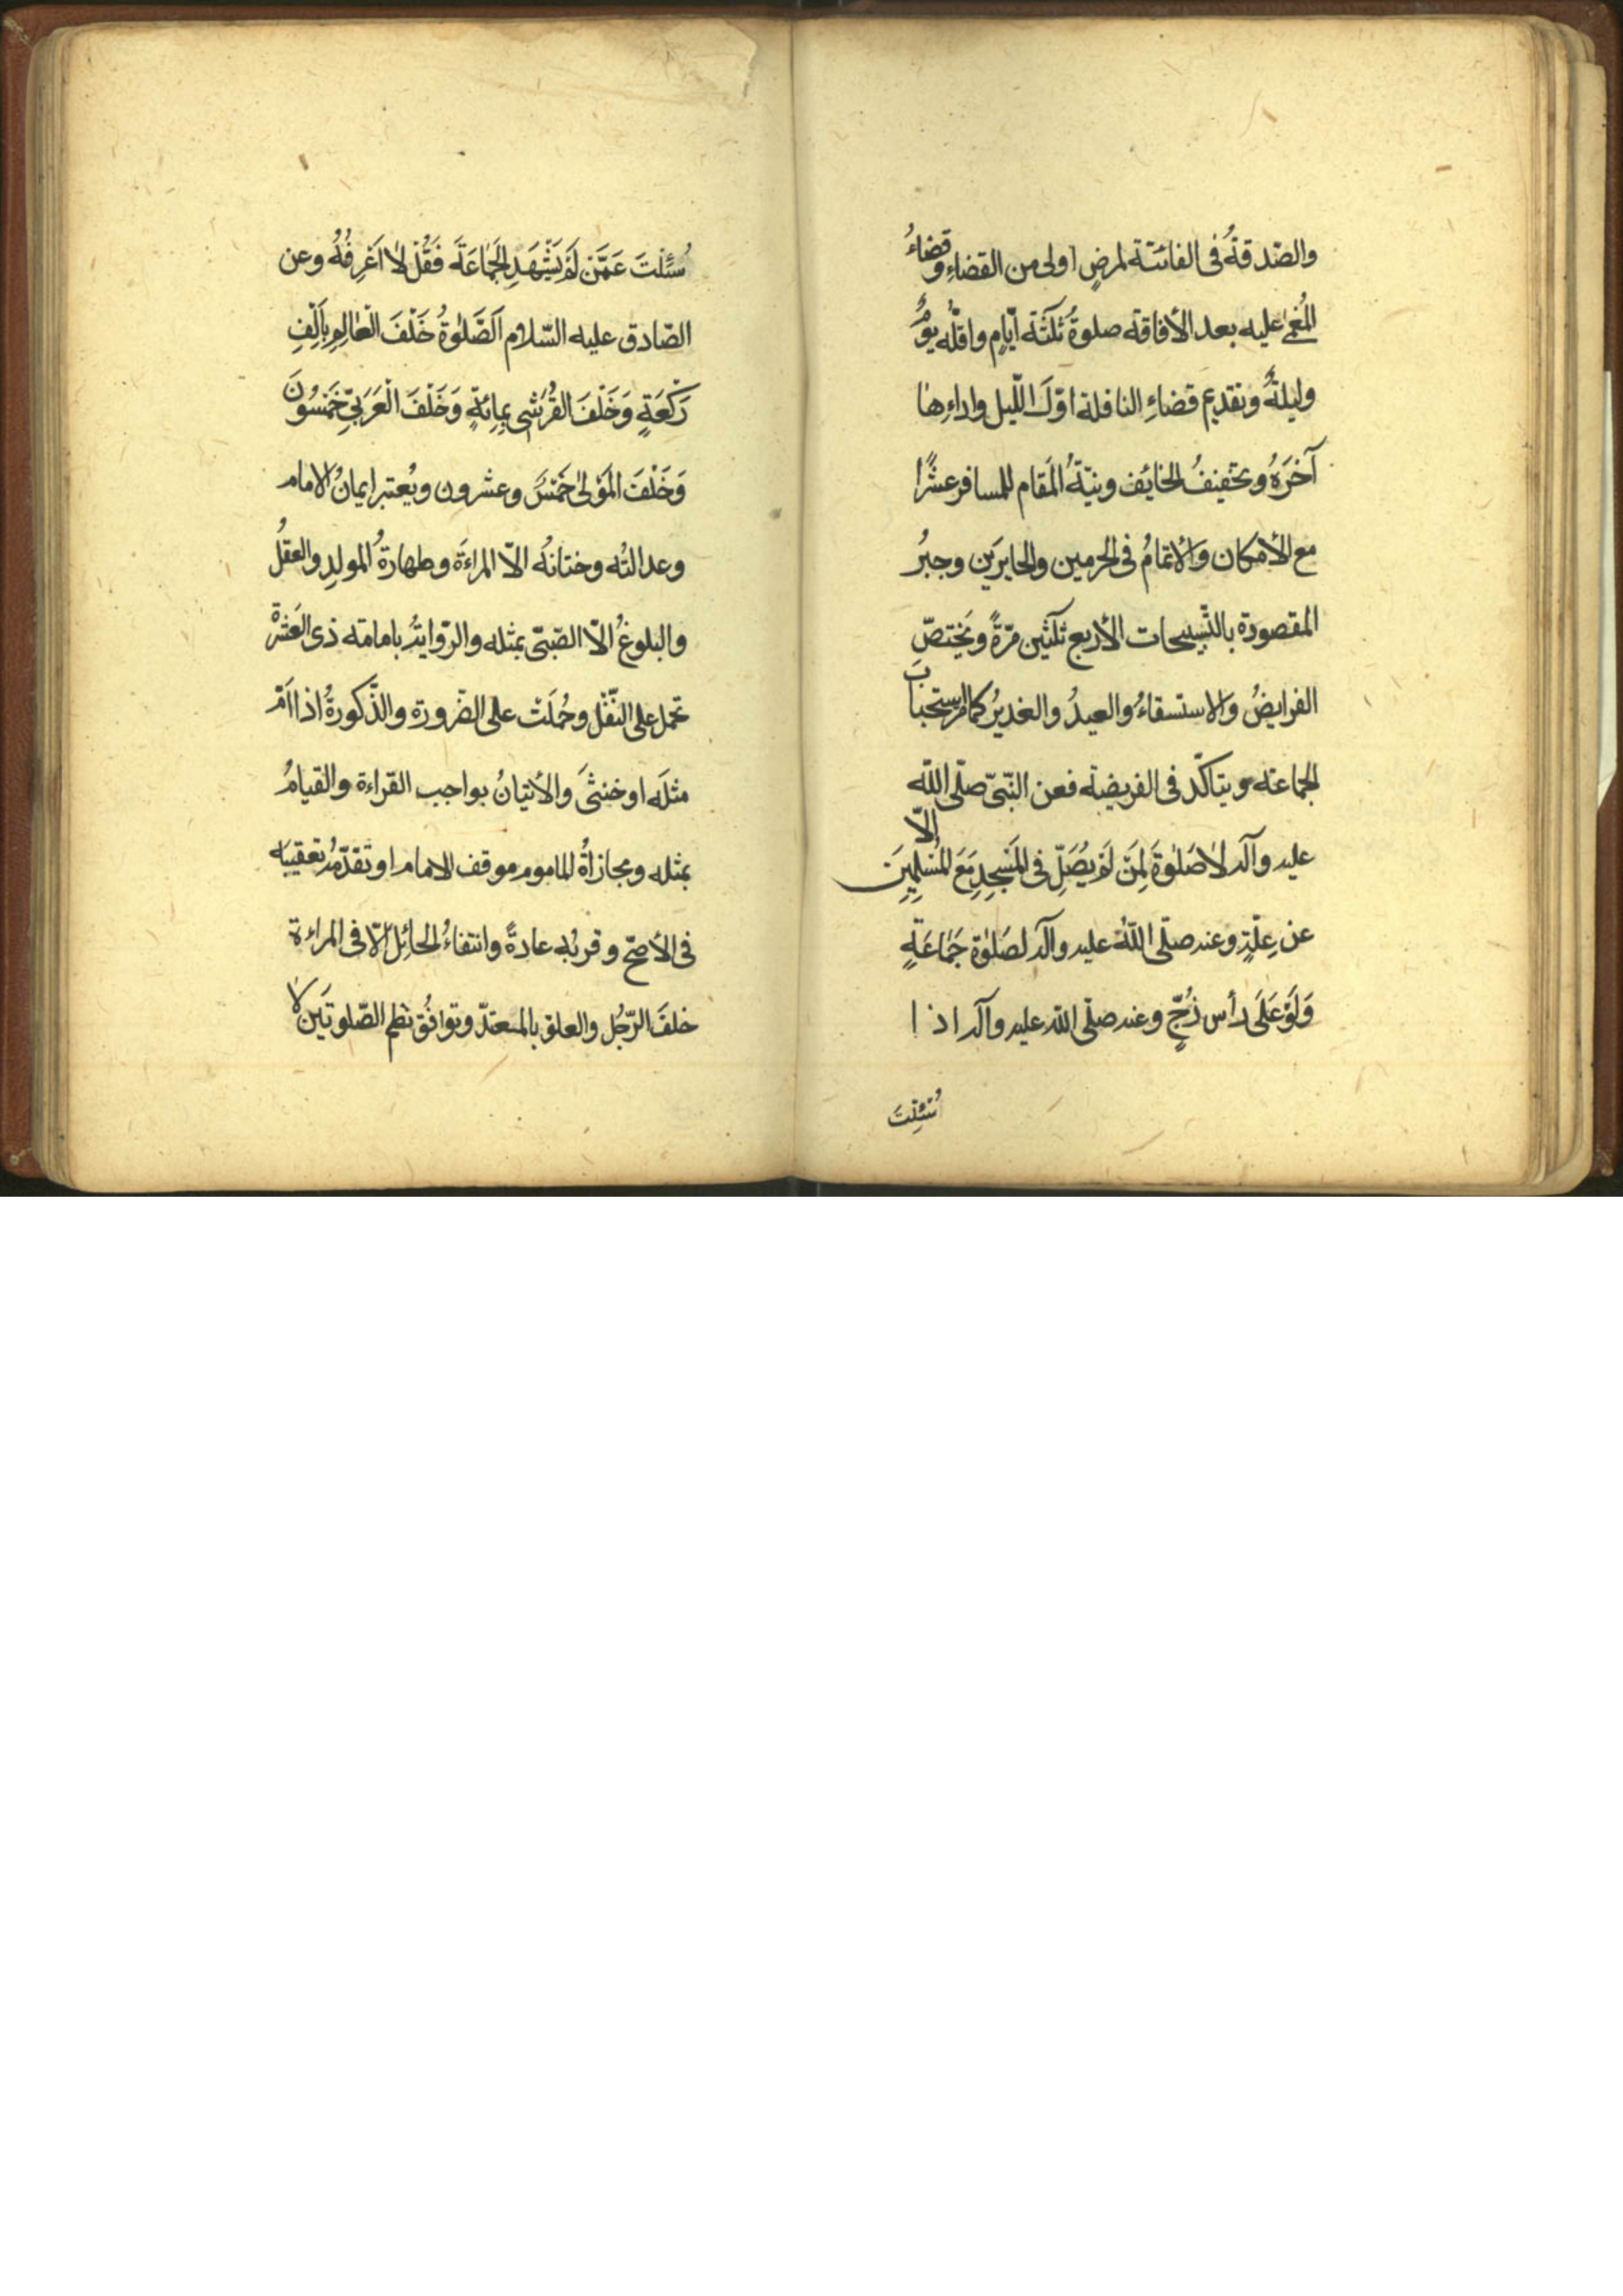 والصّدقةُ فى الفائتة لمرضٍ اولى من القضاءِ وقضاءُ
المُغمىٰ عليه بعد الأفاقة صلوةُ ثلثة ايّامٍ واقلّه يومٌ
وليلةٌ وتقديم قضاءِ النافلة اوّلَ اللّيل واداءِها
آخرَهُ وتخفيفُ الخايف ونيّةُ المَقام للمسافر عشرًا
مع الأمكان والأتمامُ فى الحرمين والحايرَين وجبرُ
المقصورة بالتّسبيحات الأربع ثلثين مرّةً ويَختصّ
الفرايضُ والاستسقاءُ والعيدُ والغديرُ كما مر ستحبابَ
الجماعة ويتاكّد فى الفريضة فعن النّبىّ صلّى اللّه
عليه وآله لاٰ صَلوٰةَ لِمَنْ لَمْ يُصَلِّ فى المَسجِدِ مَعَ المُسْلِمِينَ إلاّ
عن عِلّةٍ وعنه صلّى اللّهُ عليه وآله لصَلوٰة جَمٰاعَةٍ
وَلَوْ عَلىَ رأس زُجٍّ وعنه صلّى اللّه عليه وآله اذا
سُئِلْتَ
سُئِلْتَ عَمَّن لَمْ يَشْهَدِ الجَمٰاعَةَ فَقُلْ لاٰ اَعْرِفُهُ وعن
الصّادق عليه السّلام اَلصَّلوٰةُ خَلْفَ الْعٰالِمِ بِاَلْفِ
رَكْعَةٍ وَخَلْفَ القُرَشى بِمِائةٍ وَخَلْفَ الْعَرَبىِّ خَمْسُونَ
وَخَلْفَ المَوْلىٰ خَمْسٌ وعشرون ويُعتبر ايمانُ الامام
وعدالتُه وختانُه الاّ المراءَة وطهارةُ المولدِ والعقلُ
والبلوغُ الاّ الصّبىّ بمثله والرّوايةُ بامامته ذى العَشرة
تحمل على النّفْل وحُمِلَتْ على الضّرورة والذّكورةُ اذا اَمَّ
مثلَه او خنثىَ والأتيانُ بواجب القراءة والقيامُ
بمثله ومحازاةُ الماموم موقف الامام او تقدّمُه بعقيبه
فى الأصحّ وقربُه عادةً وانتفاءُ الحائِل الاّ فى المراءة
خلفَ الرّجُل والعلو بالمعتدّ وتوافُق نظم الصّلوتَين لا